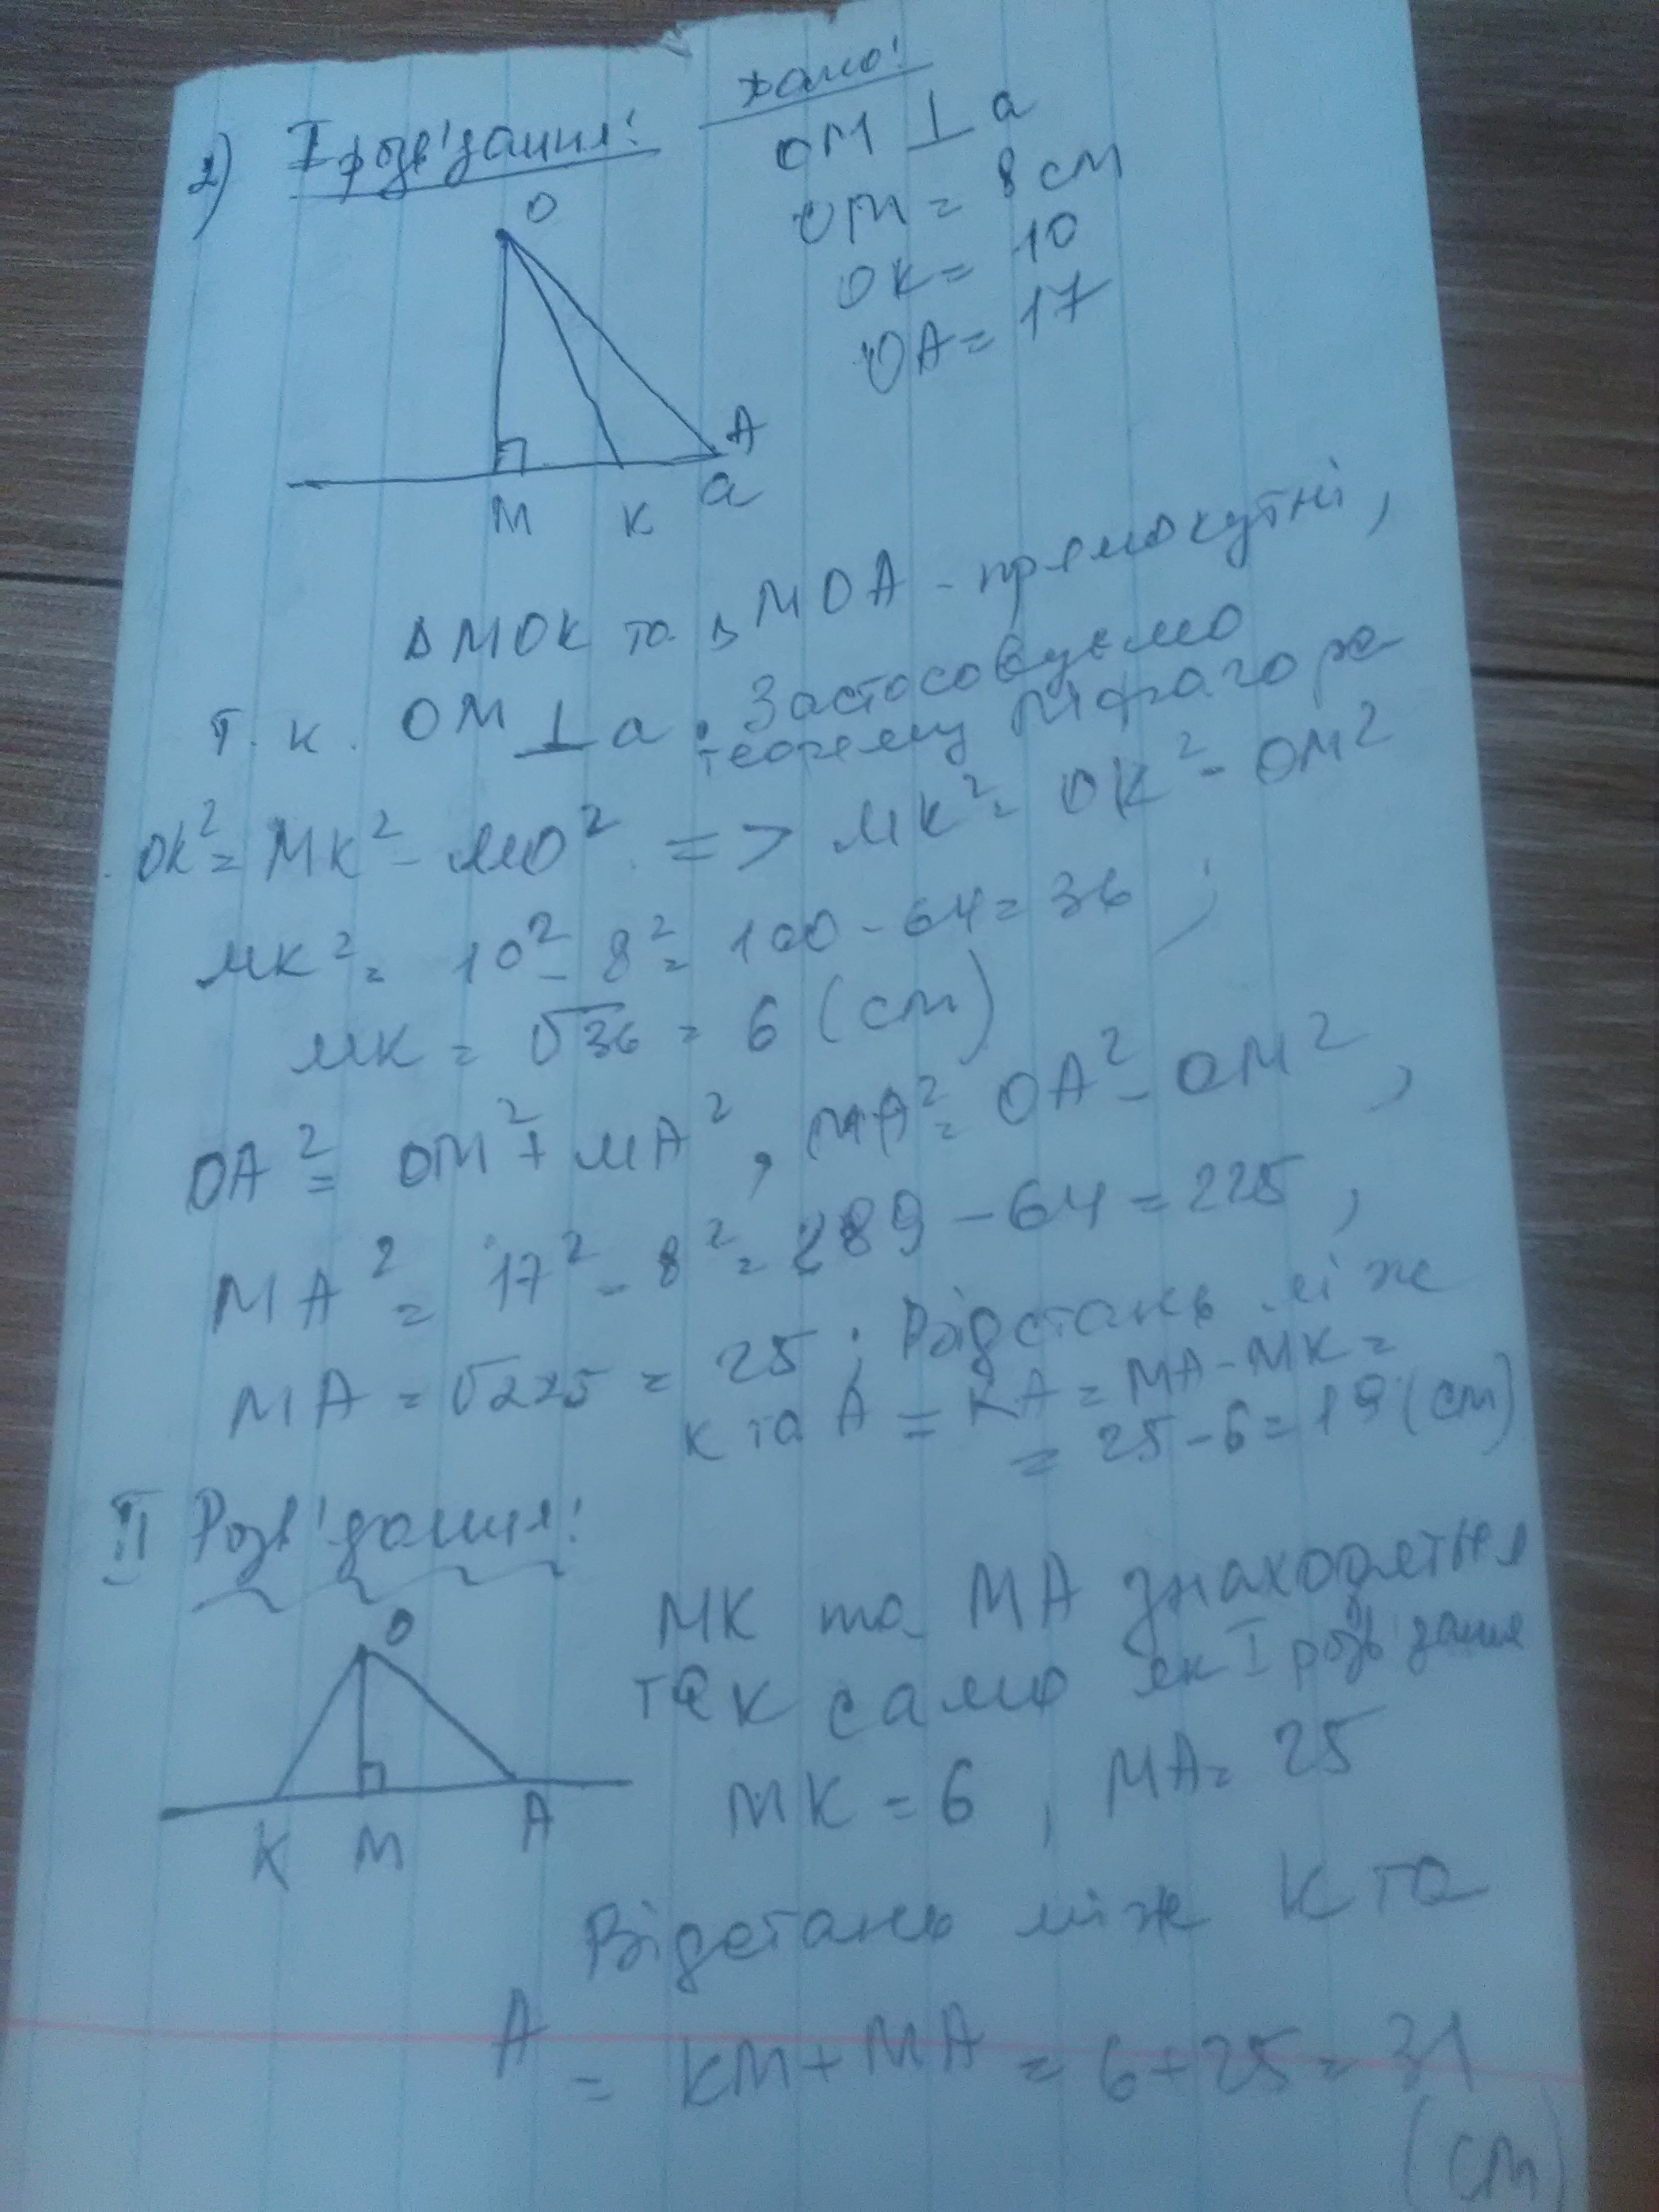 2) I розв'зання:
дано:
OM ⊥ a
OM = 8 см
OK = 10
OA = 17
O
A
M K a
Δ MOK та Δ MOA - прямокутні,
т. к. OM ⊥ a. Застосовуємо
теорему Піфагора
OK² = MK² - MO² => MK² = OK² - OM²
MK² = 10² - 8² = 100 - 64 = 36 ;
MK = √36 = 6 (см)
OA² = OM² + MA², MA² = OA² - OM² ,
MA² = 17² - 8² = 289 - 64 = 225 ,
MA = √225 = 25 ; Відстань між
K та A = KA = MA - MK =
= 25 - 6 = 19 (см)
II Розв'зання:
O
K M A
MK та MA знаходяться
так само як I розв'зання
MK = 6 , MA = 25
Відстань між K та
A = KM + MA = 6 + 25 = 31
(см)